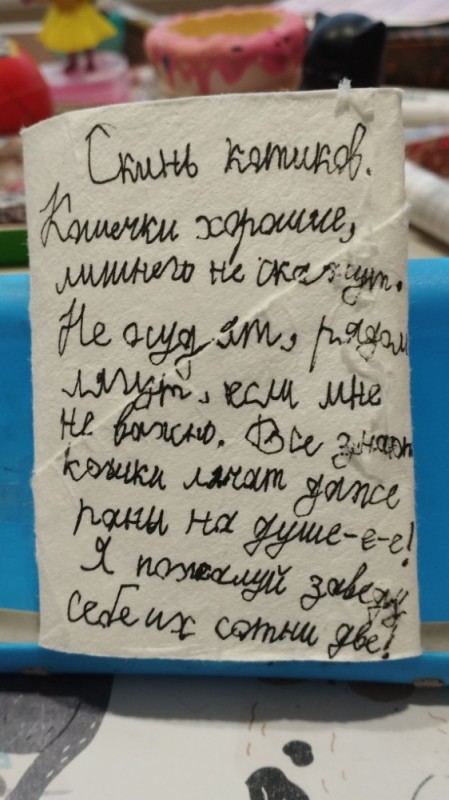 Скинь котиков.
Кошечки хорошие,
лишнего не скажут.
Не судят, рядом
лягут, если мне
не важно. Все знают
кошки лечат даже
раны на душе-е-е!
Я пожалуй заведу
себе их сотни две!